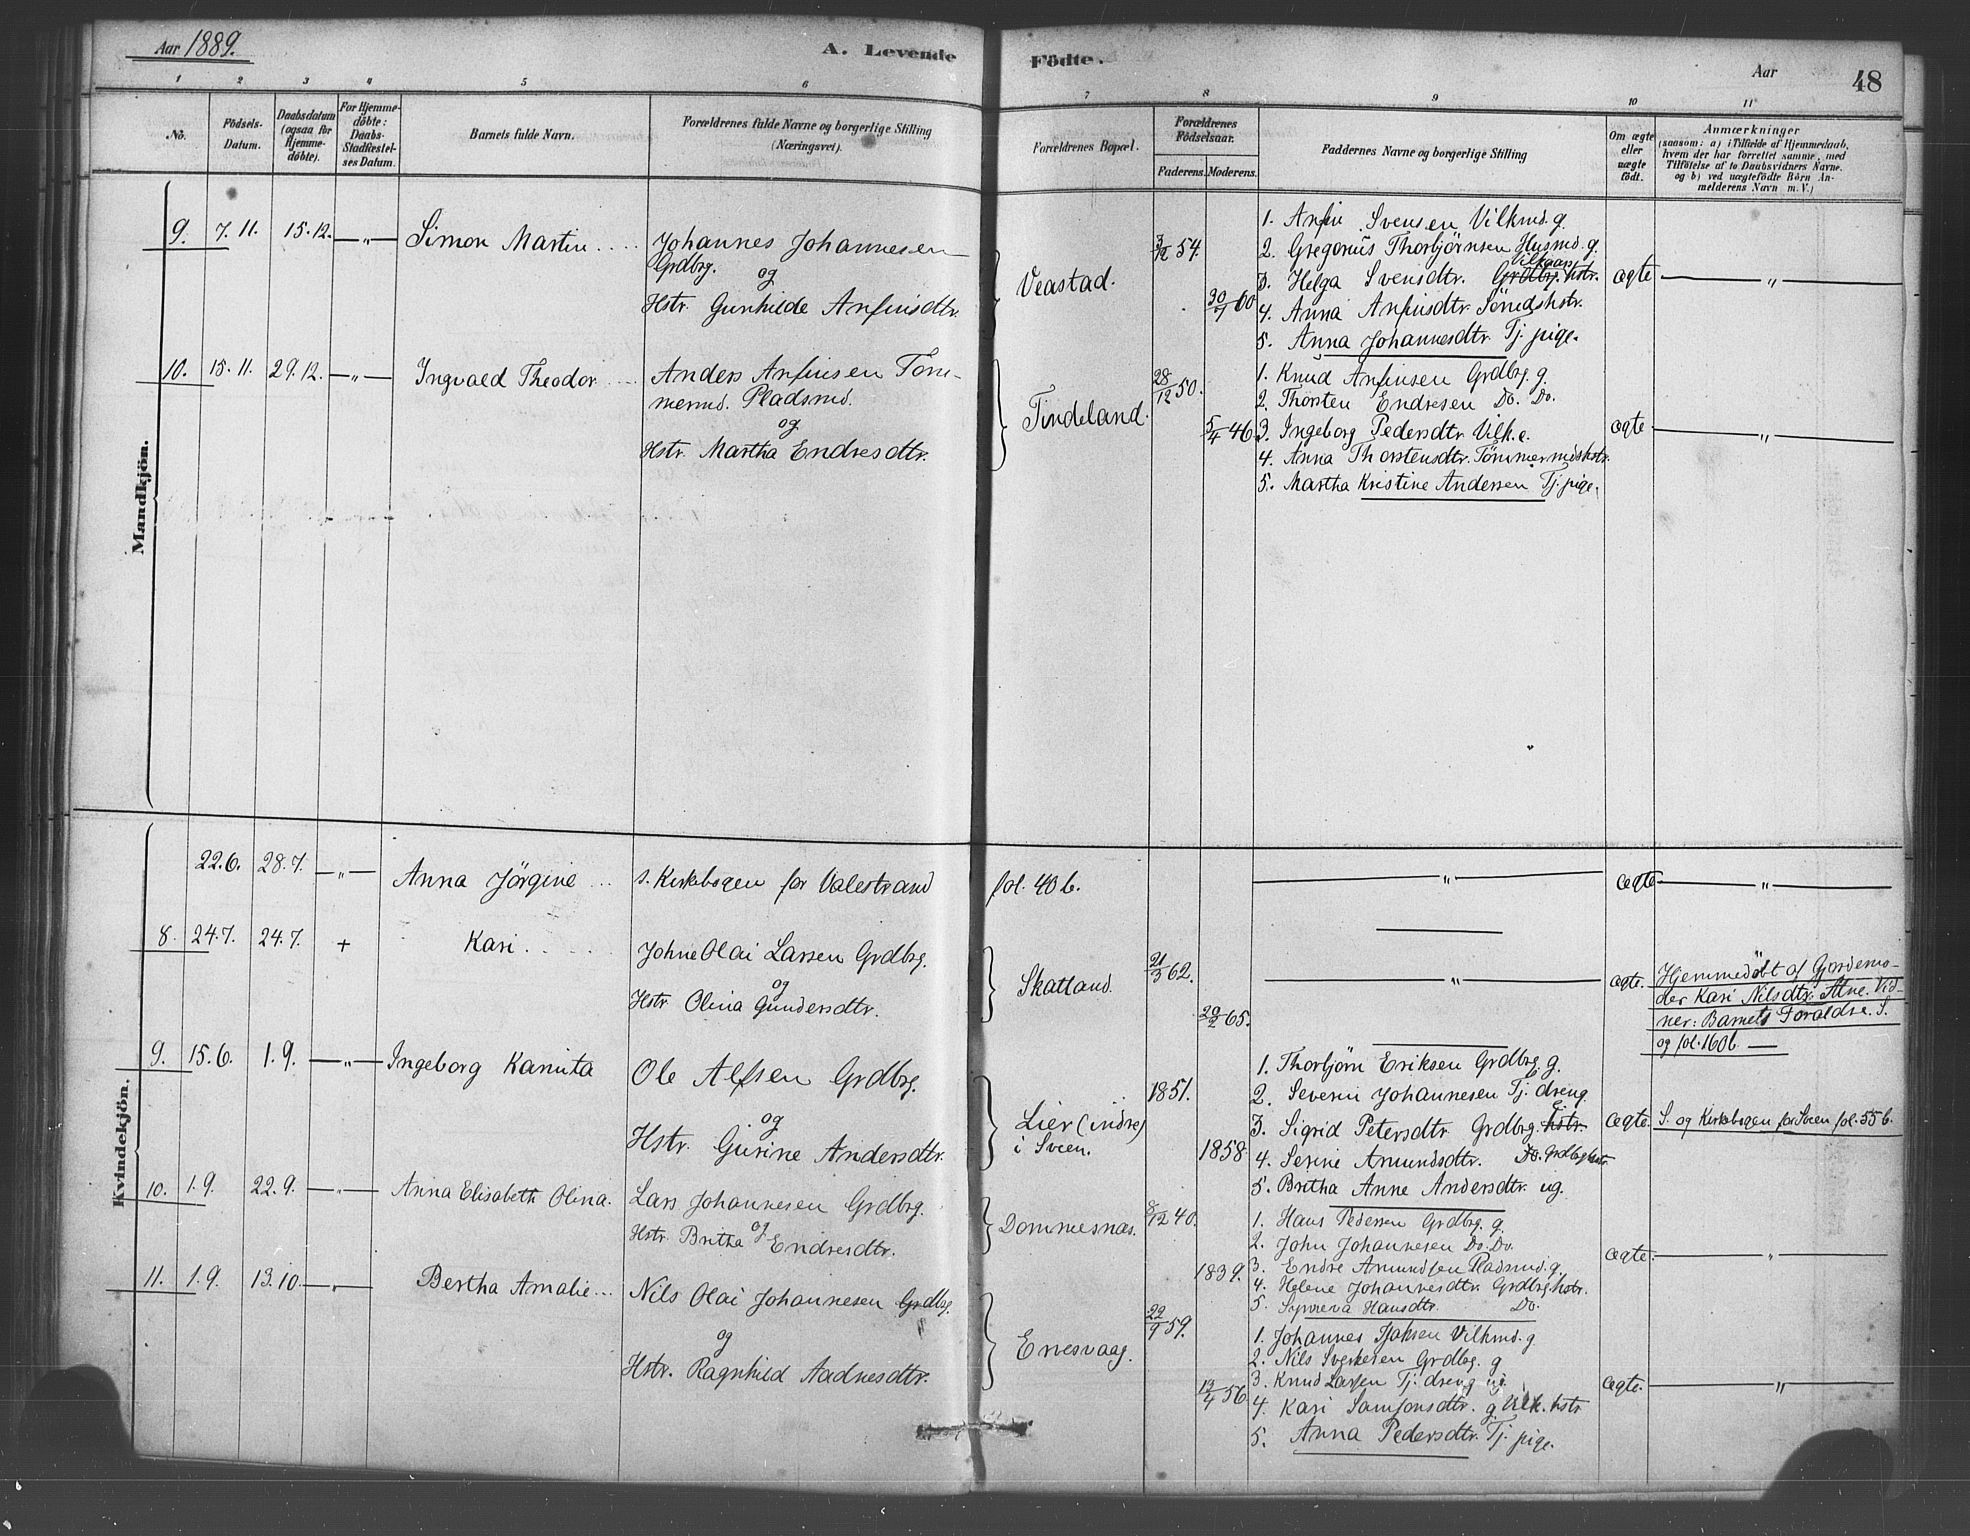 Aar 1889.
A. Levende
Födte.
Aar
48
1 2 3 4 5 6 7 8 9 10 11
No.
Födsels-
Datum.
Daabsdatum
(ogsaa for
Hjemme-
döbte).
For Hjemme-
döbte:
Daabs-
Stadfæstel-
ses Datum.
Barnets fulde Navn.
Forældrenes fulde Navne og borgerlige Stilling
(Næringsvei).
Forældrenes Bopæl.
Forældrenes
Födselsaar.
Faderens. Moderens.
Faddernes Navne og borgerlige Stilling
Om ægte
eller
uægte
födt.
Anmærkninger
(saasom: a) i Tilfælde af Hjemmedaab,
hvem der har forrettet samme, med
Tilföielse af to Daabsvidners Navne.
og b) ved uægtefödte Börn An-
melderens Navn m. V.)
Mandkjön.
9. 7. 11. 15. 12. — „ — Simon Martin
Johannes Johannesen
Grdbrg.
og
Hstr. Gunhilde Anfinsdtr.
Veastad.
3/12 54.
30/7 60
1. Anfin Svensen Vilkmd. g.
2. Gregorius Thorbjörnsen Husmd. g.
Vilkaars
3. Helga Svensdtr. Grdbrg. hstr.
4. Anna Anfinsdtr. Smedshstr.
5. Anna Johannesdtr. Tj. pige.
ægte — „ —
10. 15. 11. 29. 12. — „ — Ingvald Theodor
Anders Anfinsen Töm-
mermd. Pladsmd.
og
Hstr. Martha Endresdtr.
Tindeland.
28/12 50.
5/4 46
1. Knud Anfinsen Grdbrg. g.
2. Thorsten Endresen Do. Do.
3. Ingeborg Pedersdtr. Vilk. e.
4. Anna Thorstensdtr. Tömmermdshstr.
5. Martha Kristine Andersen Tj. pige.
ægte — „ —
Kvindekjön.
22. 6. 28. 7. — „ — Anna Jörgine
s. Kirkebogen for Valestrand
fol. 40 b.
— „ — ægte — „ —
8. 24. 7. 24. 7. + Kari
Johne Olai Larsen Grdbrg.
og
Hstr. Olina Gundersdtr.
Skatland
21/3 62.
20/2 65.
— „ — ægte.
Hjemmedöbt af Gjordemo-
der Kari Nilsdtr. Alne. Vid-
ner: Barnets Foraldre. S.
og fol. 160 b. —
9. 15. 6. 1. 9. — „ — Ingeborg Kamita
Ole Alfsen Grdbrg.
og
Hstr. Gurine Andersdtr.
Lier (indre)
i Sveen.
1851.
1858
1. Thorbjörn Eriksen Grdbrg. g.
2. Severin Johannesen Tj. dreng
3. Sigrid Petersdtr. Grdbrg. hstr.
4. Serine Amundsdtr. Do. Grdbrghstr.
5. Britha Anne Andersdtr. ug.
ægte. S. og Kirkebogen for Sveen fol. 55 b.
10. 1. 9. 22. 9. — „ — Anna Elisabeth Olina.
Lars Johannesen Grdbrg.
og
Hstr. Britha Endresdtr.
Dommesnæs.
8/12 40.
1839.
1. Hans Pedersen Grdbrg. g.
2. John Johannesen Do. Do.
3. Endre Amundsen Pladsmd. g.
4. Helene Johannesdtr. Grdbrghstr.
5. Synneva Hansdtr. Do.
ægte. — „ —
11. 1. 9. 13. 10. — „ — Bertha Amalie
Nils Olai Johannesen Grdbrg.
og
Hstr. Ragnhild Aadnesdtr.
Enesvaag.
22/9 59.
13/4 56
1. Johannes Isaksen Vilkmd. g
2. Nils Sverkesen Grdbrg. g
3. Knud Larsen Tj. dreng ug.
4. Kari Samsonsdtr. g Vilk. hstr.
5. Anna Pedersdtr. Tj. pige.
ægte. — „ —